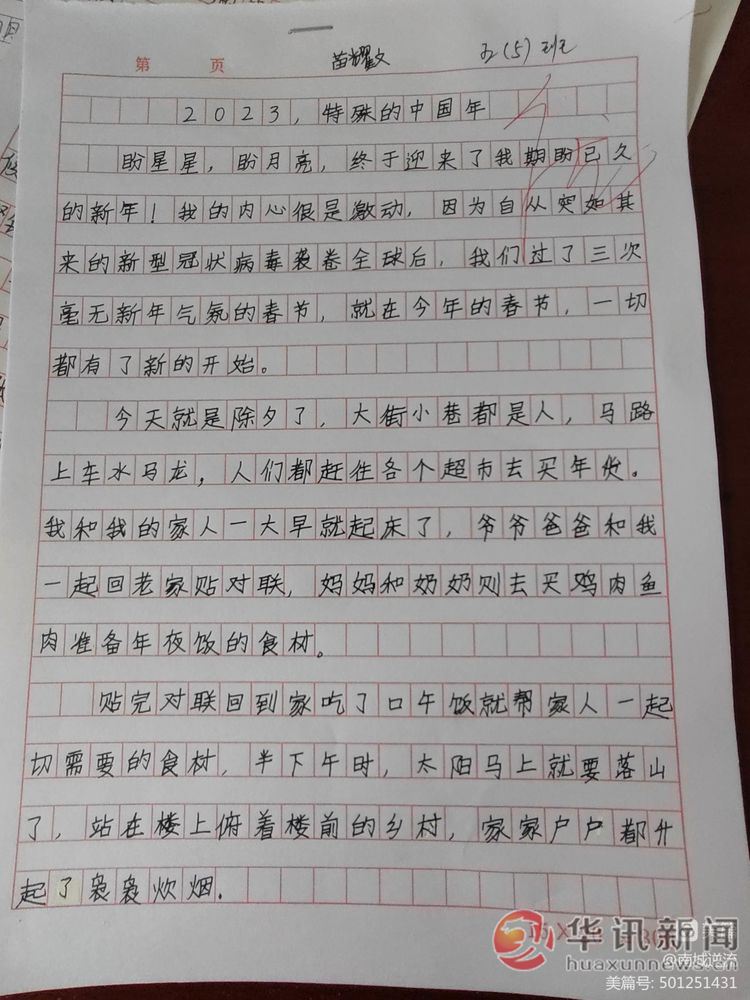 第 页 苗耀文 五(5)班
2023，特殊的中国年
盼星星，盼月亮，终于迎来了我期盼已久
的新年！我的内心很是激动，因为自从突如其
来的新型冠状病毒袭卷全球后，我们过了三次
毫无新年气氛的春节，就在今年的春节，一切
都有了新的开始。
今天就是除夕了，大街小巷都是人，马路
上车水马龙，人们都赶往各个超市去买年货。
我和我的家人一大早就起床了，爷爷爸爸和我
一起回老家贴对联，妈妈和奶奶则去买鸡肉鱼
肉准备年夜饭的食材。
贴完对联回到家吃了口午饭就帮家人一起
切需要的食材，半下午时，太阳马上就要落山
了，站在楼上俯着楼前的乡村，家家户户都升
起了袅袅炊烟.
华讯新闻
huaxunnews.cn
@南城逆流
美篇号: 501251431